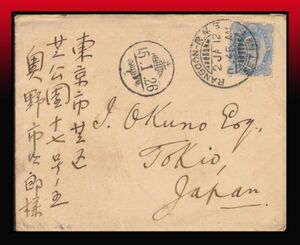 東京市芝区
芝公園十七号ノ五
奥野市次郎様
RANGOON R.M.S.
2 JA 12
45.1.26
I. Okuno Esq.,
Tokio,
Japan.